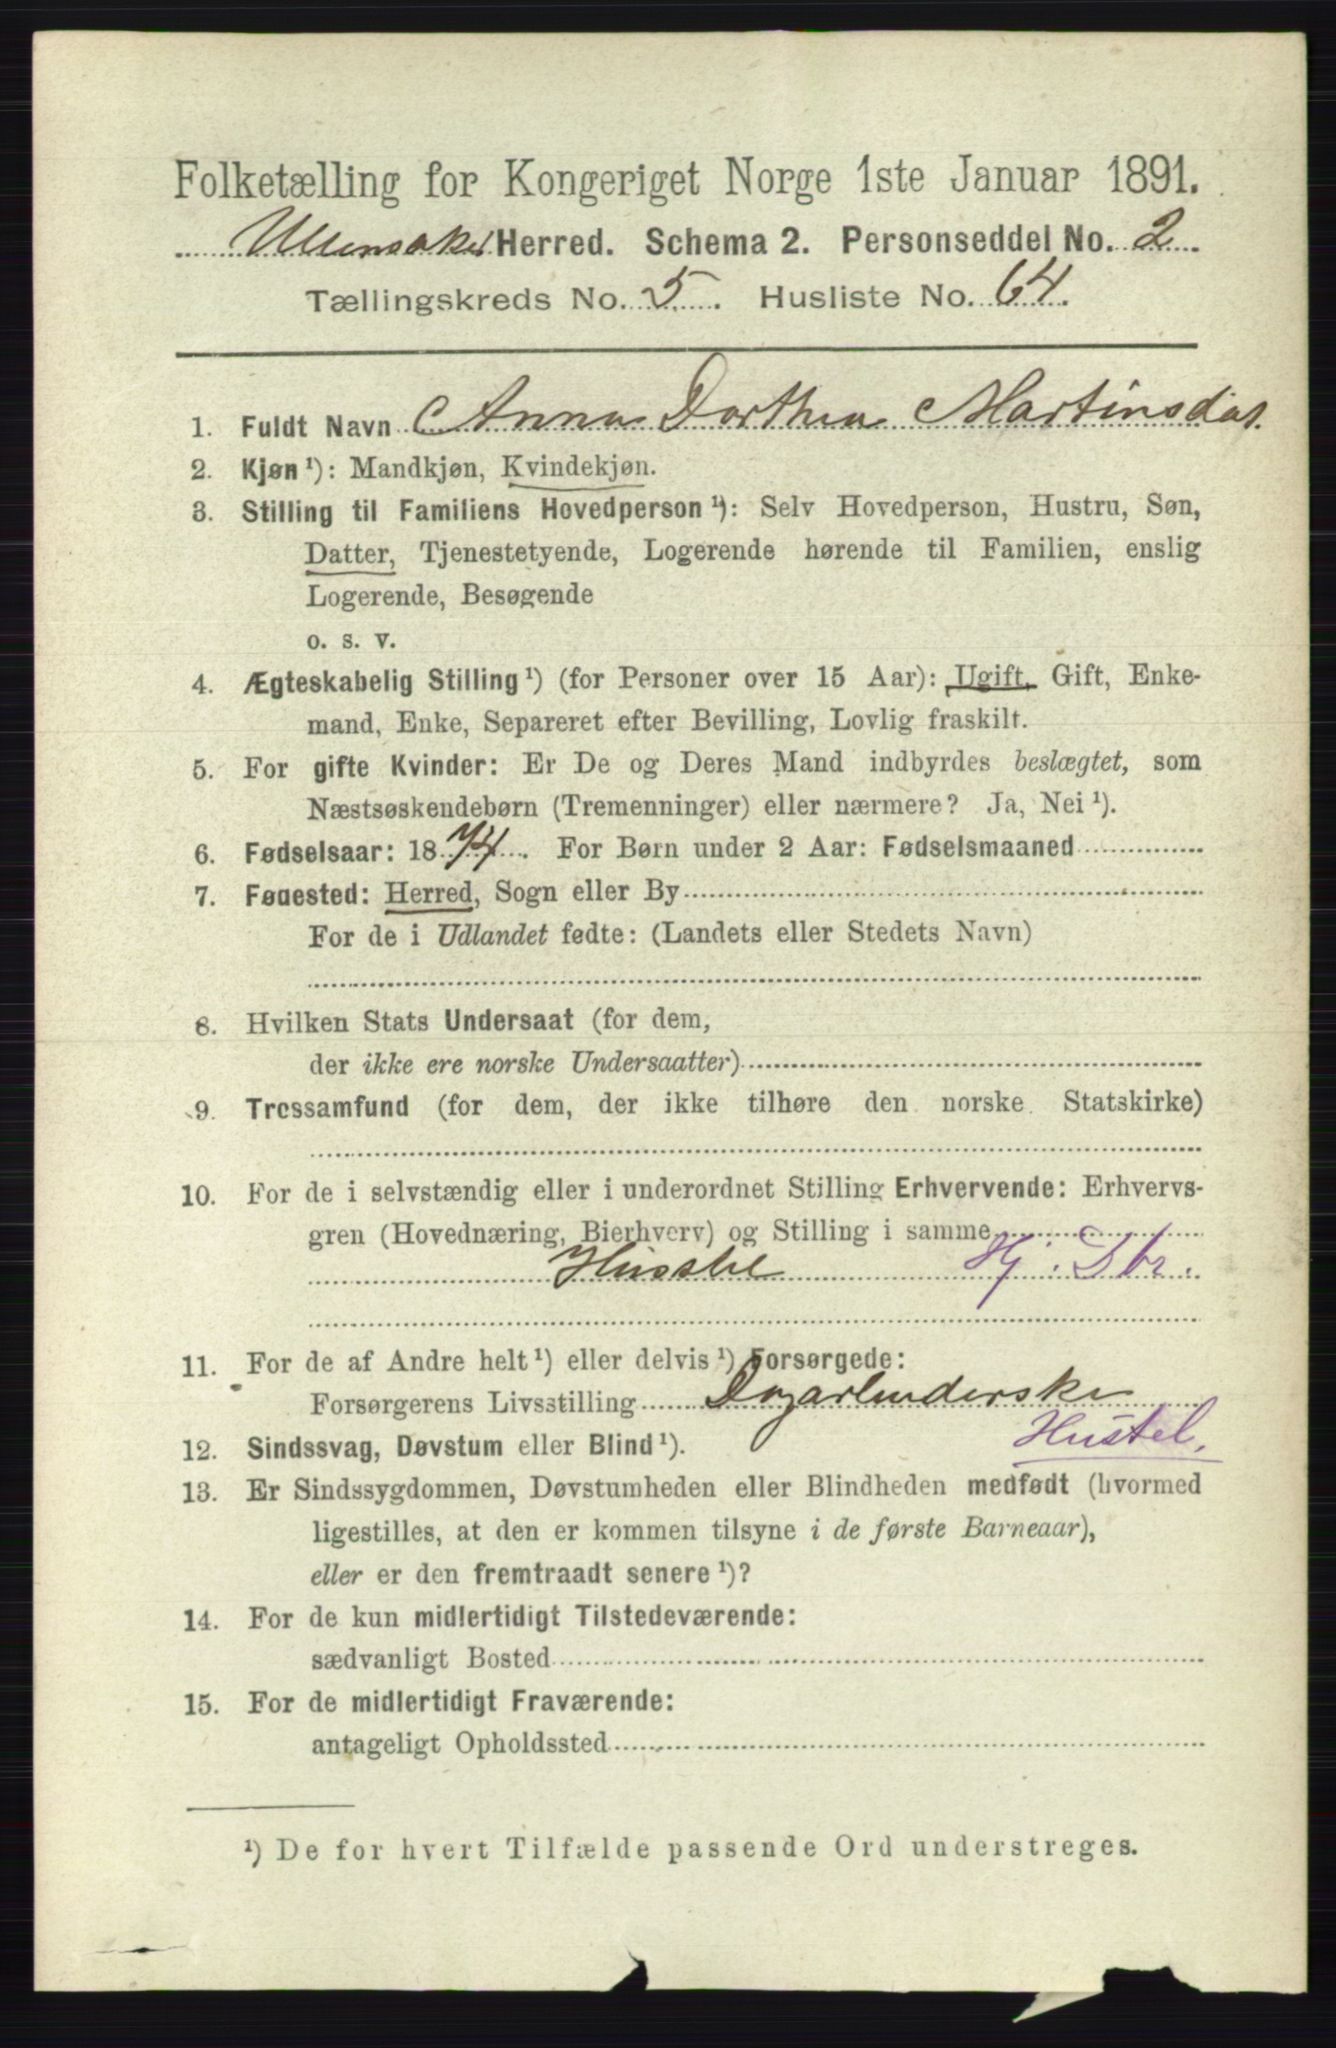 Folketælling for Kongeriget Norge 1ste Januar 1891.
Ullensaker Herred. Schema 2. Personseddel No. 2
Tællingskreds No. 5. Husliste No. 64.
1. Fuldt Navn Anna Dorthea Martinsdat.
2. Kjøn ¹): Mandkjøn, Kvindekjøn.
3. Stilling til Familiens Hovedperson ¹): Selv Hovedperson, Hustru, Søn,
Datter, Tjenestetyende, Logerende hørende til Familien, enslig
Logerende, Besøgende
o. s. v.
4. Ægteskabelig Stilling ¹) (for Personer over 15 Aar): Ugift, Gift, Enke-
mand, Enke, Separeret efter Bevilling, Lovlig fraskilt.
5. For gifte Kvinder: Er De og Deres Mand indbyrdes beslægtet, som
Næstsøskendebørn (Tremenninger) eller nærmere? Ja, Nei ¹).
6. Fødselsaar: 1874. For Børn under 2 Aar: Fødselsmaaned
7. Føuested: Herred, Sogn eller By
For de i Udlandet fødte: (Landets eller Stedets Navn)
8. Hvilken Stats Undersaat (for dem,
der ikke ere norske Undersaatter)
9. Trossamfund (for dem, der ikke tilhøre den norske Statskirke)
10. For de i selvstændig eller i underordnet Stilling Erhvervende: Erhvervs-
gren (Hovednæring, Bierhverv) og Stilling i samme
Husstel Hj. Dtr.
11. For de af Andre helt ¹) eller delvis ¹) Forsørgede:
Forsørgerens Livsstilling
Hustel.
12. Sindssvag, Døvstum eller Blind ¹).
13. Er Sindssygdommen, Døvstumheden eller Blindheden medfødt (hvormed
ligestilles, at den er kommen tilsyne i de første Barneaar),
eller er den fremtraadt senere ¹)?
14. For de kun midlertidigt Tilstedeværende:
sædvanligt Bosted
15. For de midlertidigt Fraværende:
antageligt Opholdssted
¹) De for hvert Tilfælde passende Ord understreges.